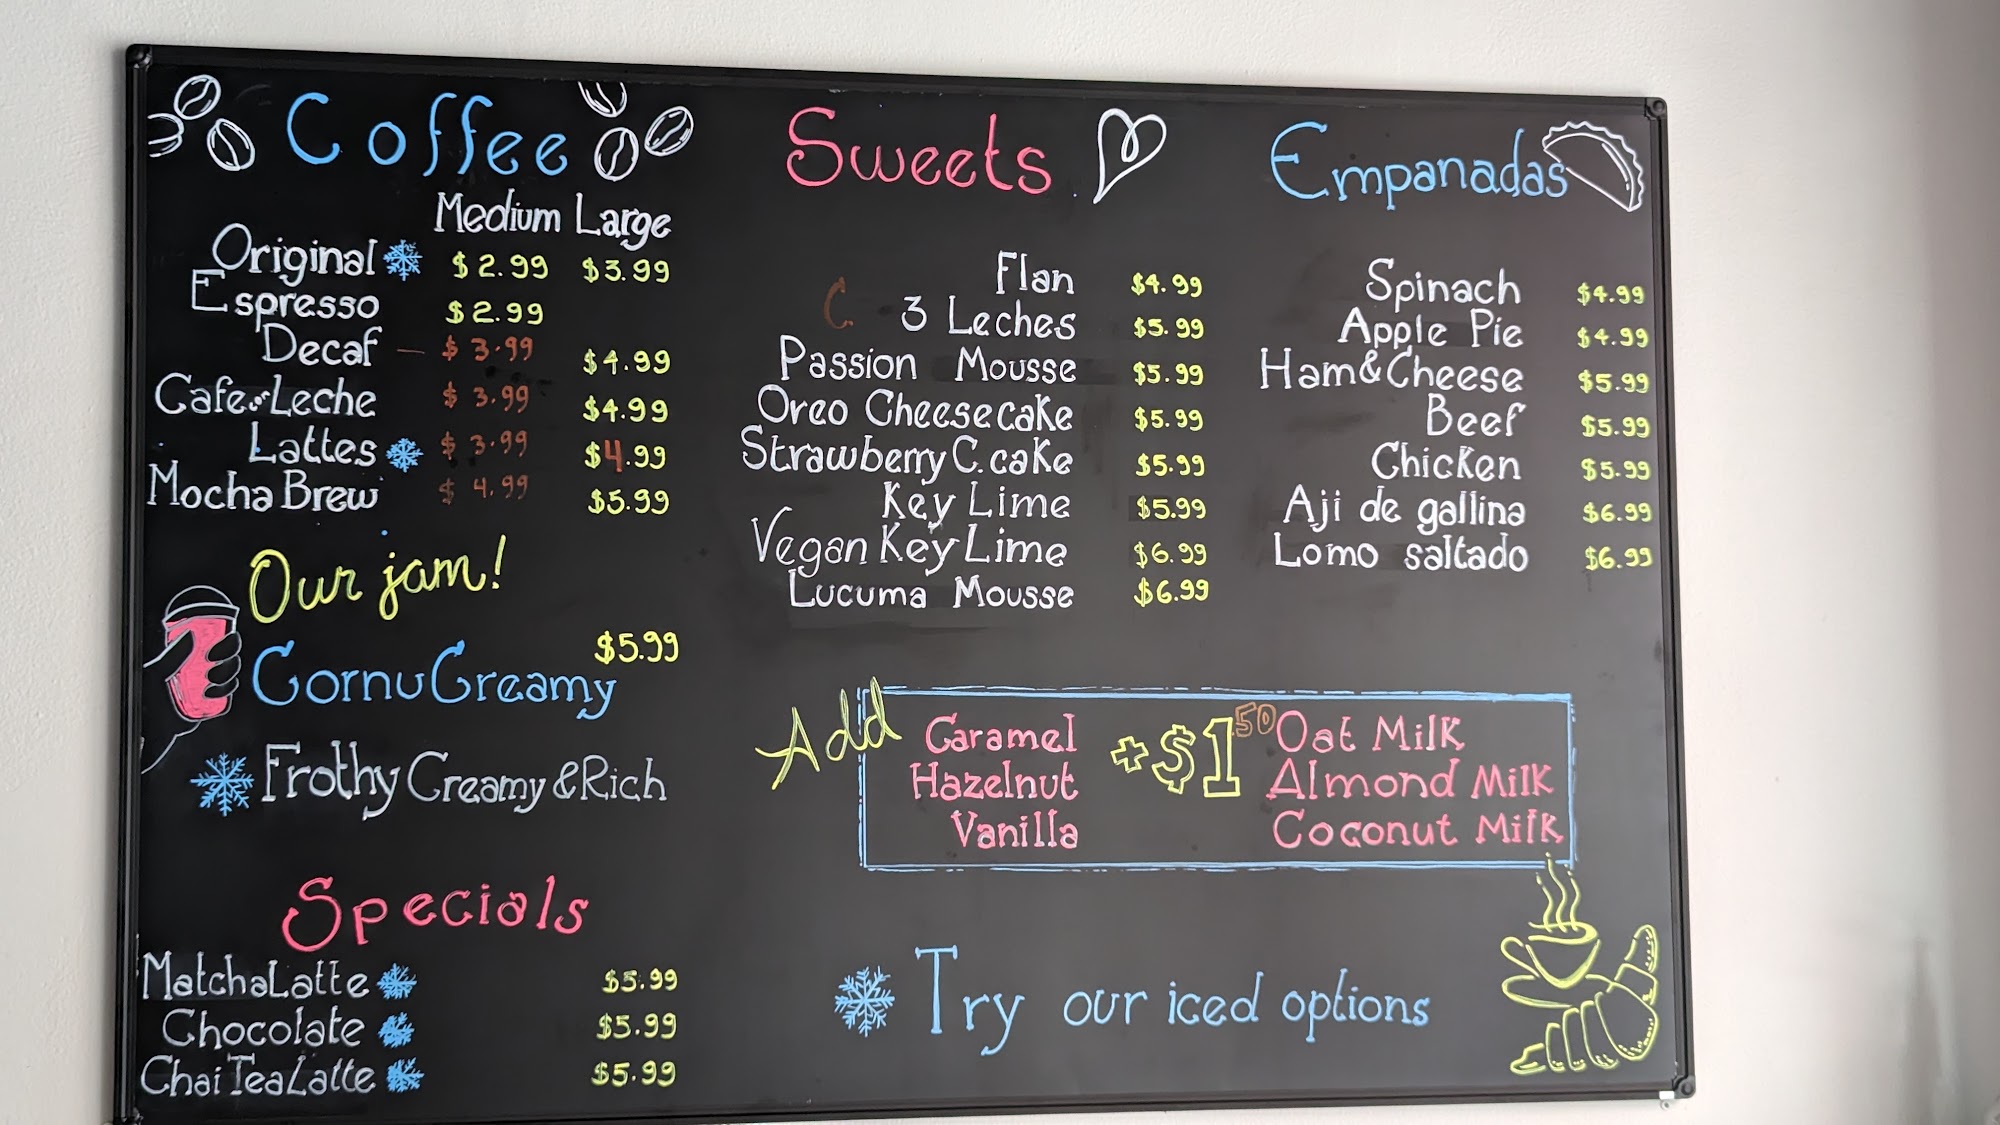 Coffee
Medium Large
Original $2.99 $3.99
Espresso $2.99
Decaf - $3.99 $4.99
Cafe con Leche $3.99 $4.99
Lattes $3.99 $4.99
Mocha Brew $4.99 $5.99
Our jam!
$5.99
CornuCreamy
Frothy Creamy & Rich
Specials
Matcha Latte $5.99
Chocolate $5.99
Chai Tea Latte $5.99
Sweets
Flan $4.99
C 3 Leches $5.99
Passion Mousse $5.99
Oreo Cheesecake $5.99
Strawberry C. cake $5.99
Key Lime $5.99
Vegan Key Lime $6.99
Lucuma Mousse $6.99
Empanadas
Spinach $4.99
Apple Pie $4.99
Ham & Cheese $5.99
Beef $5.99
Chicken $5.99
Aji de gallina $6.99
Lomo saltado $6.99
Add
Caramel
Hazelnut
Vanilla
+$1.50
Oat Milk
Almond Milk
Coconut Milk
Try our iced options